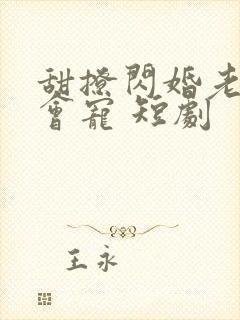 甜撩閃婚老
會寵 短劇
王永